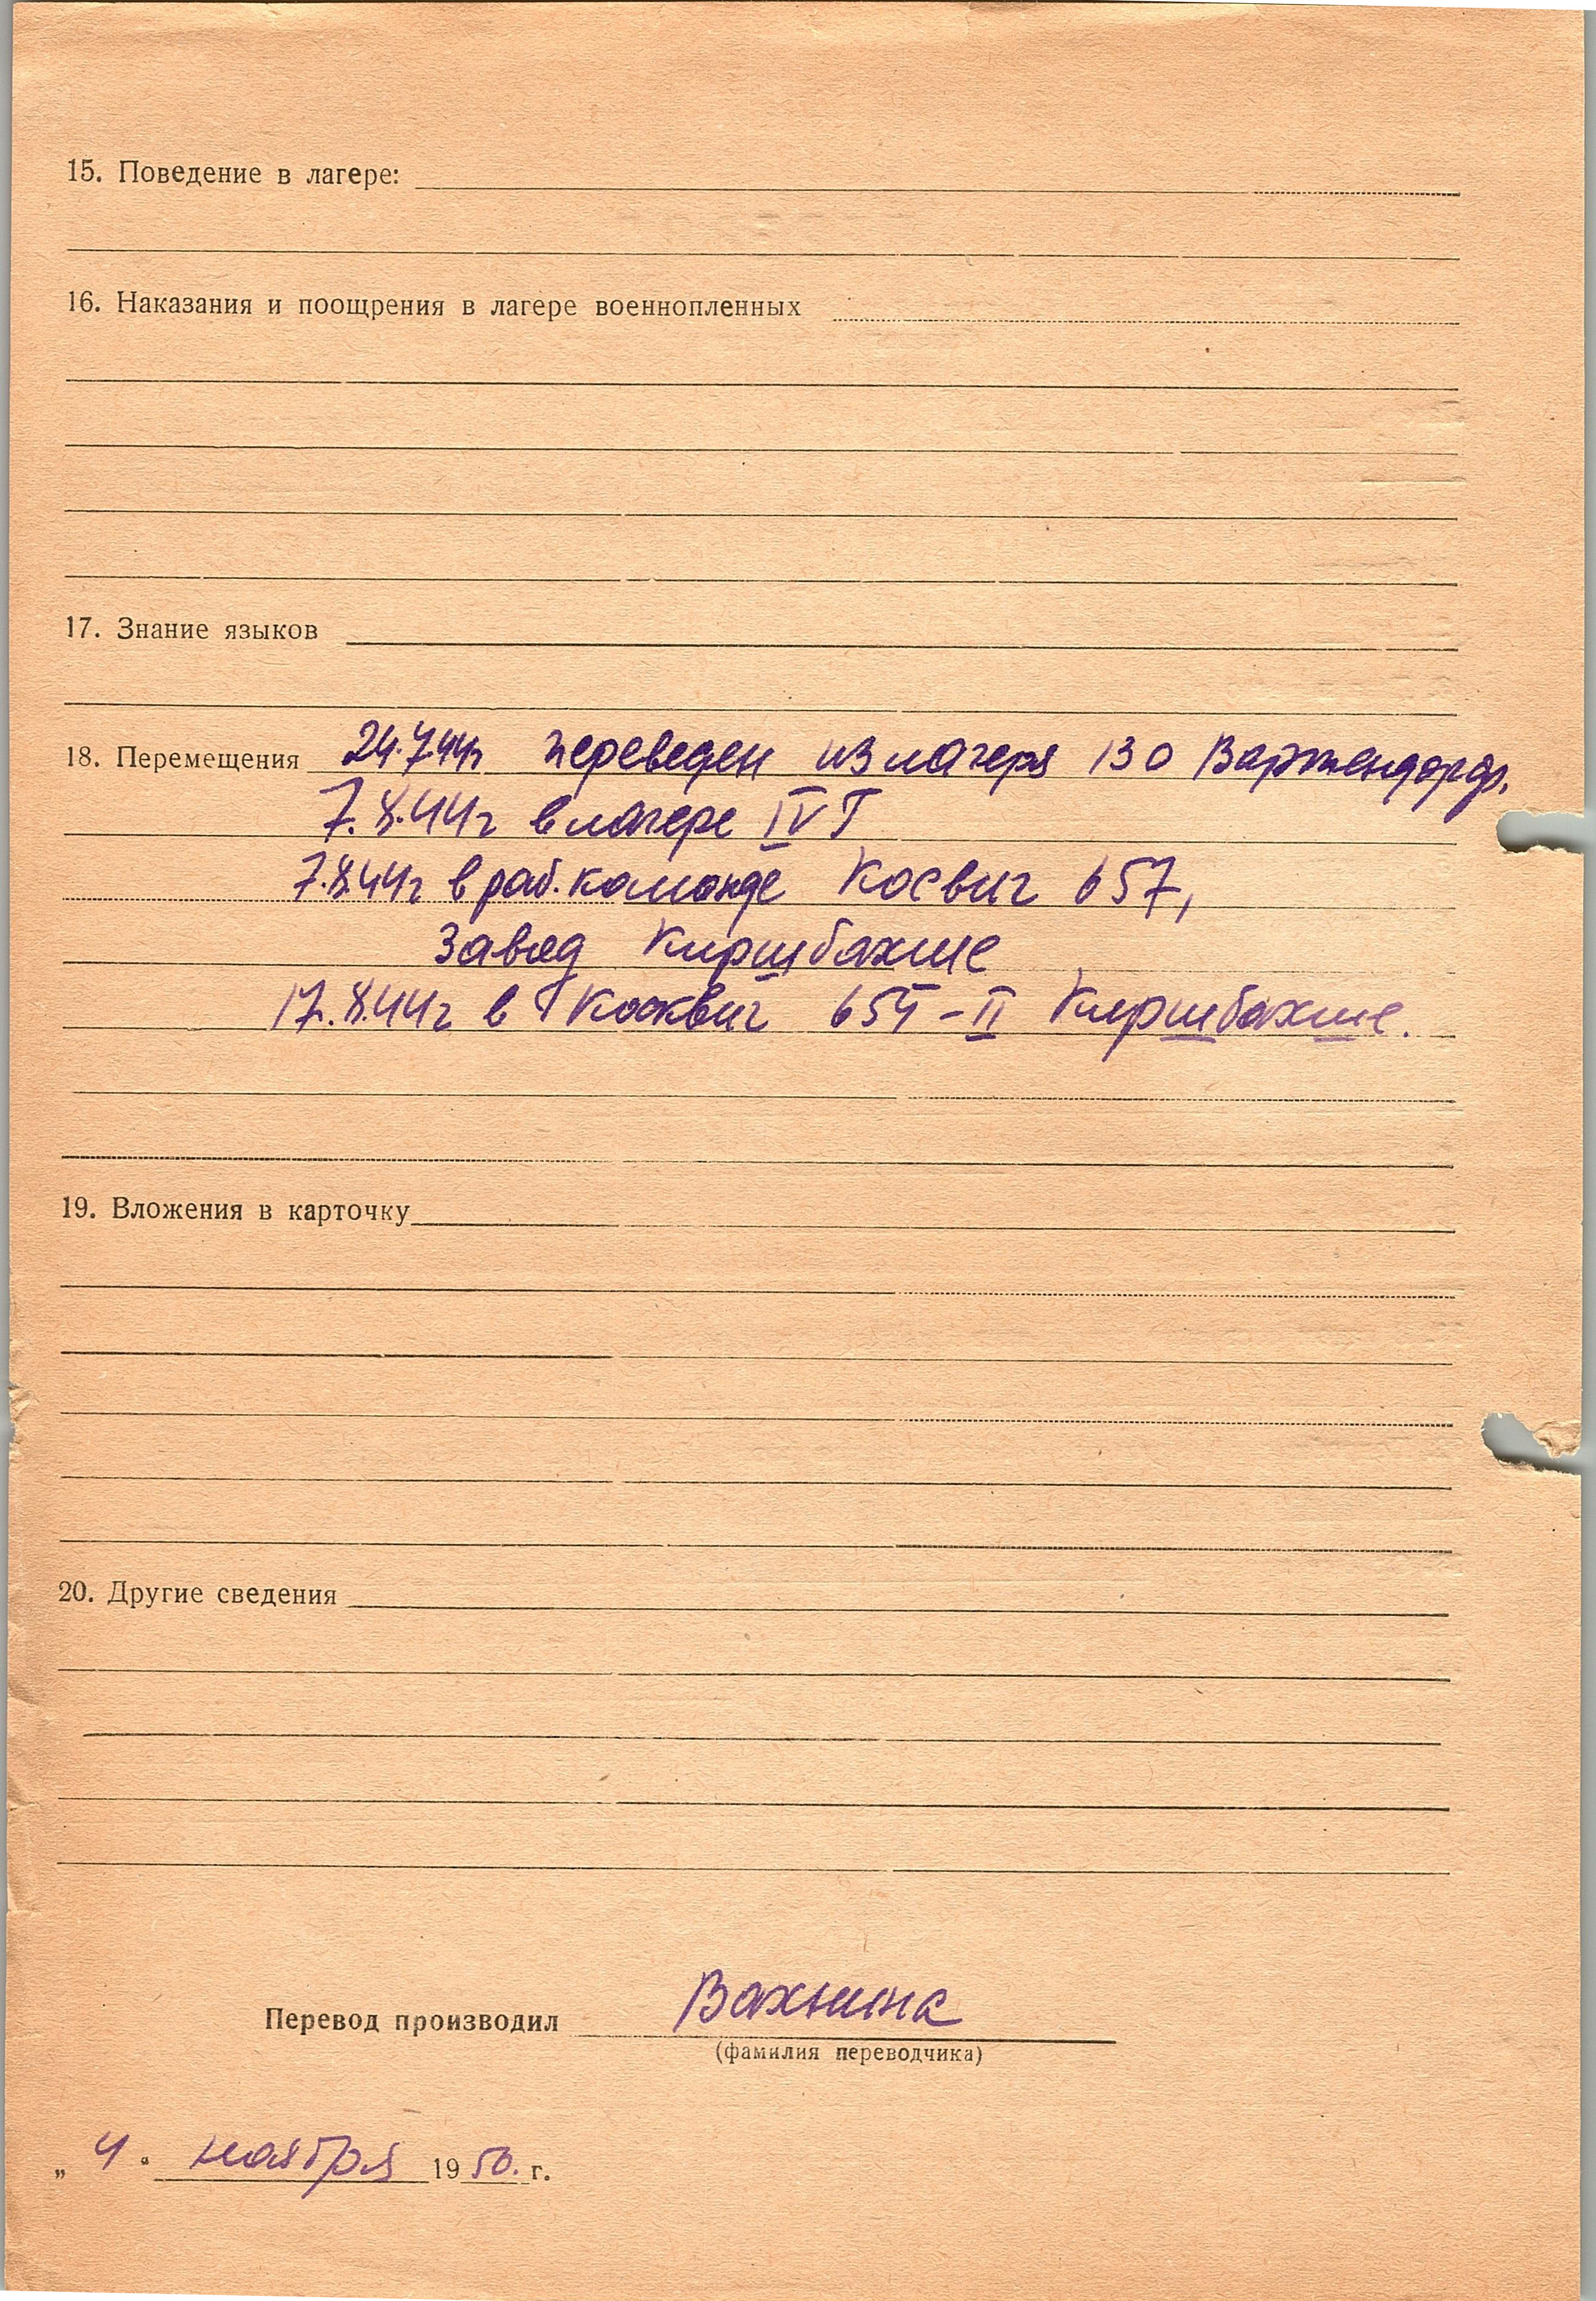 15. Поведение в лагере:
16. Наказания и поощрения в лагере военнопленных
17. Знание языков
18. Перемещения 24.7.44г. переведен из лагеря 130 Вартендорф.
7.8.44г в лагере IV Г
7.8.44г в раб. команде Косвиг 657,
завод Киршбахше
17.8.44г в Косквиг 654 - II Киршбахше.
19. Вложения в карточку
20. Другие сведения
Перевод производил Вахнина
(фамилия переводчика)
„ 4 " ноября 1950. г.